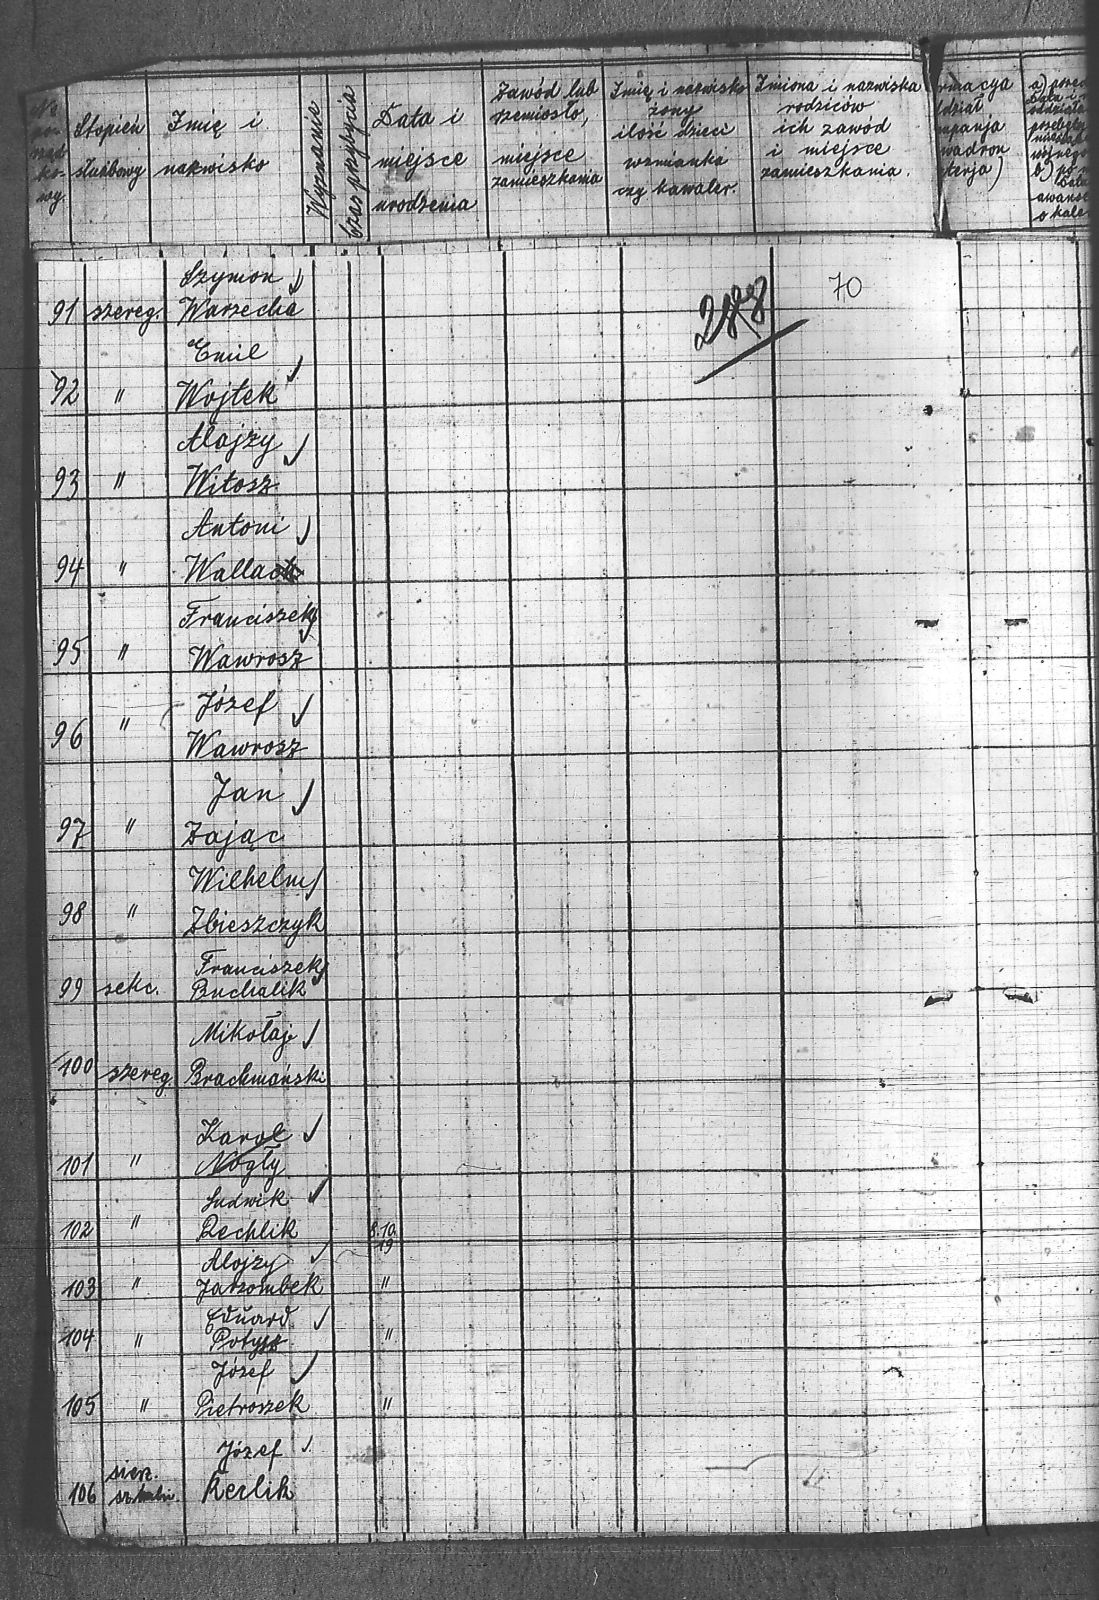 No
Stopień
służbowy
Imię i
nazwisko
Wyznanie
Czas przybycia
Data i
miejsce
urodzenia
Zawód lub
rzemiosło,
miejsce
zamieszkania
Imię i nazwisko
żony
ilość dzieci
wzmianka
czy kawaler.
Imiona i nazwiska
rodziców
ich zawód
i miejsce
zamieszkania.
rmacya
dział
mpanja
wadron
terja)
70
Szymon
91 szereg. Warzecha
Emil
92 " Wojtek
Alojzy
93 " Witosz
Antoni
94 " Wallach
Franciszek
95 " Wawrosz
Józef
96 " Wawrosz
Jan
97 " Zając
Wilhelm
98 " Zbieszczyk
Franciszek
99 sekc. Buchalik
Mikołaj
100 szereg Brachmański
Karol
101 " Nogły
Ludwik
102 " Rechlik 8.10.
19
Alojzy
103 " Jarzombek "
Eduard
104 " "
Józef
105 " Pietroszek "
Józef
sierż.
106 Kerlik